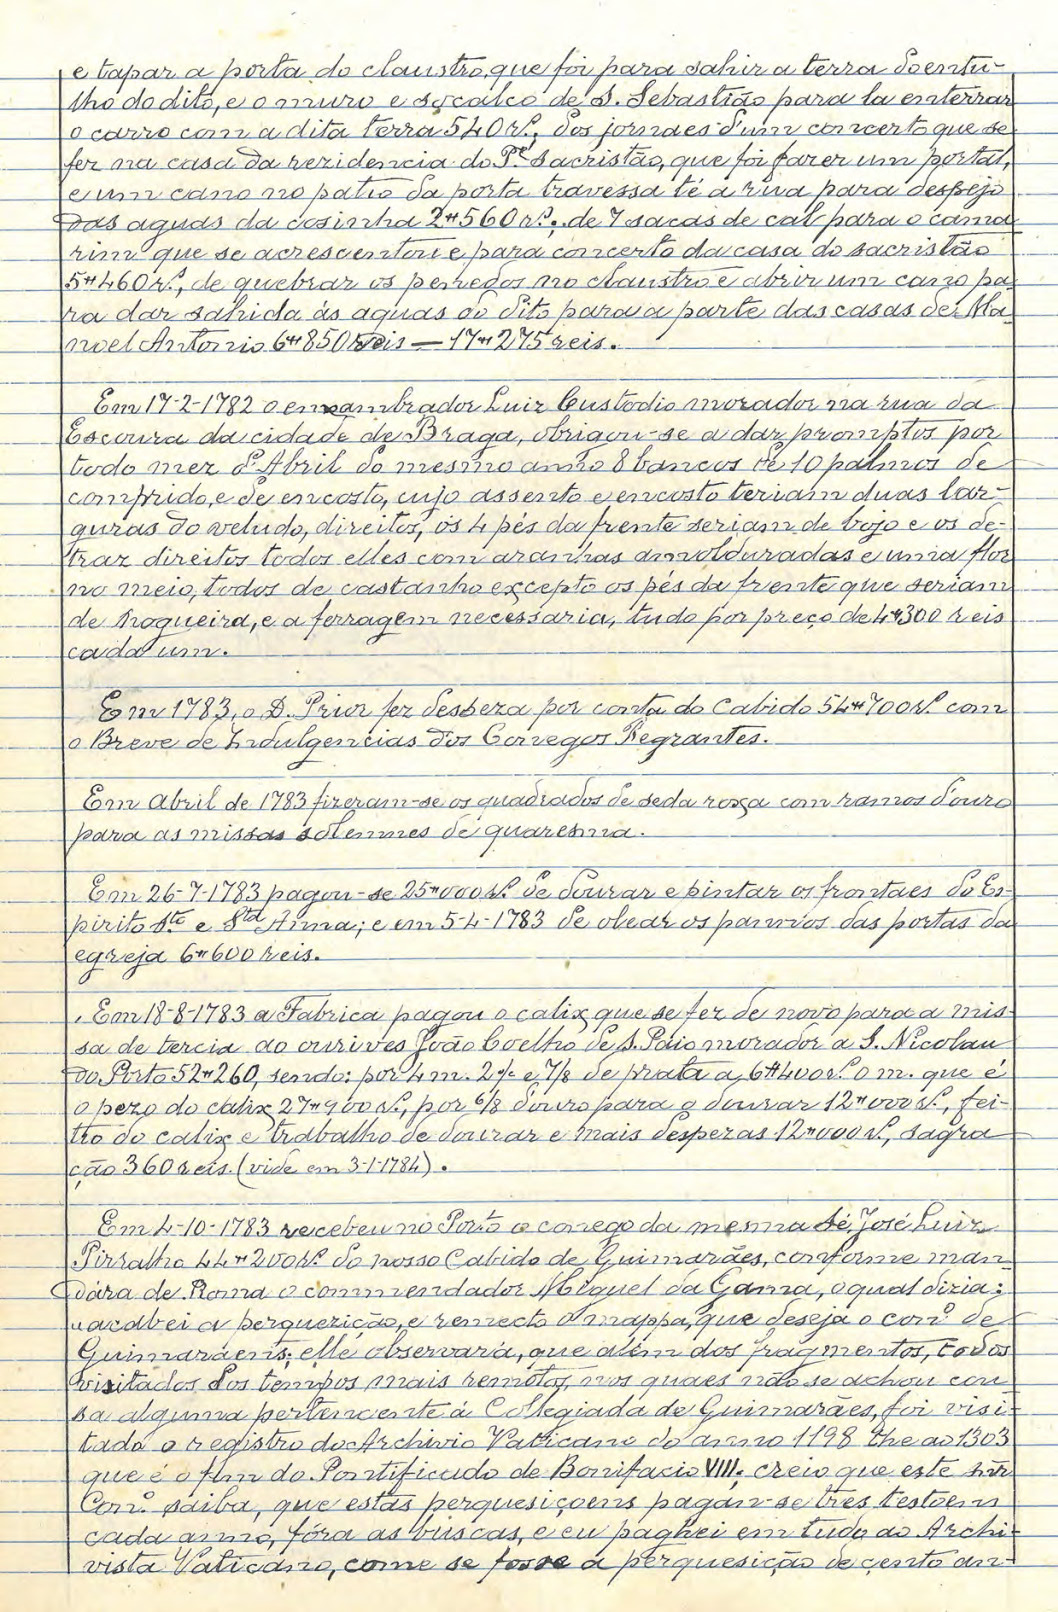 e tapar a porta do claustro, que foi para sahir a terra do entu-
lho do dito, e o muro e socalco de S. Sebastião para la enterrar
o carro com a dita terra 540 rs.; dos jornaes d'um concerto que se
fez na casa da rezidencia do Pe. sacristão, que foi fazer um portal,
e um cano no patio da porta travessa té a rua para despejo
das aguas da cosinha 2#560 rs.; de 7 sacas de cal para o cama
rim que se acrescentou e para concerto da casa do sacristão
5#460 rs., de quebrar os penedos no claustro e abrir um cano pa-
ra dar sahida ás aguas do dito para a parte das casas de Ma-
noel Antonio 6#850 reis — 17#275 reis.
Em 17-2-1782 o ensamblador Luiz Custodio morador na rua da
Escoura da cidade de Braga, obrigou-se a dar promptos por
todo mez d'Abril do mesmo anno 8 bancos de 10 palmos de
comprido, e de encosto, cujo assento e encosto teriam duas lar-
guras do veludo, direitos, os 4 pés da frente seriam de bojo e os de-
traz direitos todos elles com aranhas amolduradas e uma flor
no meio, todos de castanho excepto os pés da frente que seriam
de nogueira, e a ferragem necessaria, tudo por preço de 4#300 reis
cada um.
Em 1783, o D. Prior fez despeza por conta do Cabido 54#700 rs. com
o Breve de Indulgencias dos Conegos Regrantes.
Em Abril de 1783 fizeram-se os quadrados de seda roxa com ramos d'ouro
para as missas solemnes de quaresma.
Em 26-7-1783 pagou-se 25#000 rs. de dourar e pintar os frontaes do Es-
pirito Sto. e Sta. Anna; e em 5-4-1783 de olear os pannos das portas da
egreja 6#600 reis.
Em 18-8-1783 a Fabrica pagou o calix que se fez de novo para a mis-
sa de tercia ao ourives João Coelho de S. Paio morador a S. Nicolau
do Porto 52#260, sendo: por 4 m. 2 e 7/8 de prata a 6#400 rs. o m. que é
o pezo do calix 27#900 rs., por 6/8 d'ouro para o dourar 12#000 rs., fei-
tio do calix e trabalho de dourar e mais despezas 12#000 rs., sagra
ção 360 reis. (vide em 3-1-1784).
Em 4-10-1783 recebeu no Porto o conego da mesma Sé, José Luiz
Pirralho 44#200 rs. do nosso Cabido de Guimarães, conforme man-
dára de Roma o commendador Miguel da Gama, o qual dizia:
"acabei a perquezição, e remecto o mappa, que deseja o con.º de
Guimaraens; elle observará, que além dos fragmentos, todos
visitados dos tempos mais remotos, nos quaes não se achou cou
sa alguma pertencente á Collegiada de Guimarães, foi visi-
tado o registro do Archivio Vaticano do anno 1198 the ao 1303
que é o fim do Pontificado de Bonifacio VIII; creio que este snr.
Con.º saiba, que estas perquesiçoens pagán-se tres testoens
cada anno, fóra as buscas, e eu paghei em tudo ao Archi-
vista Vaticano, come se fosse a perquesição de cento an-